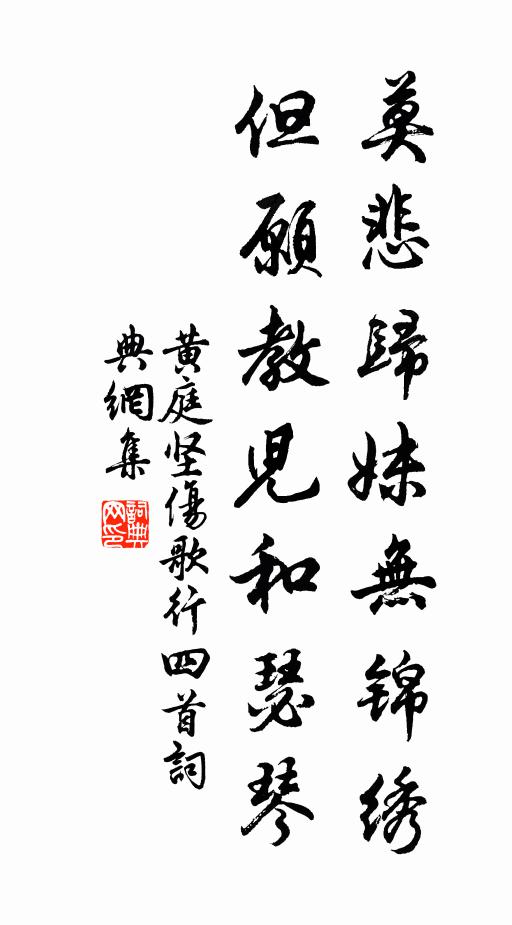 莫悲歸妹無锦绣
但願教児和瑟琴
黄庭坚傷歌行四首詞
典網集
詞典网印